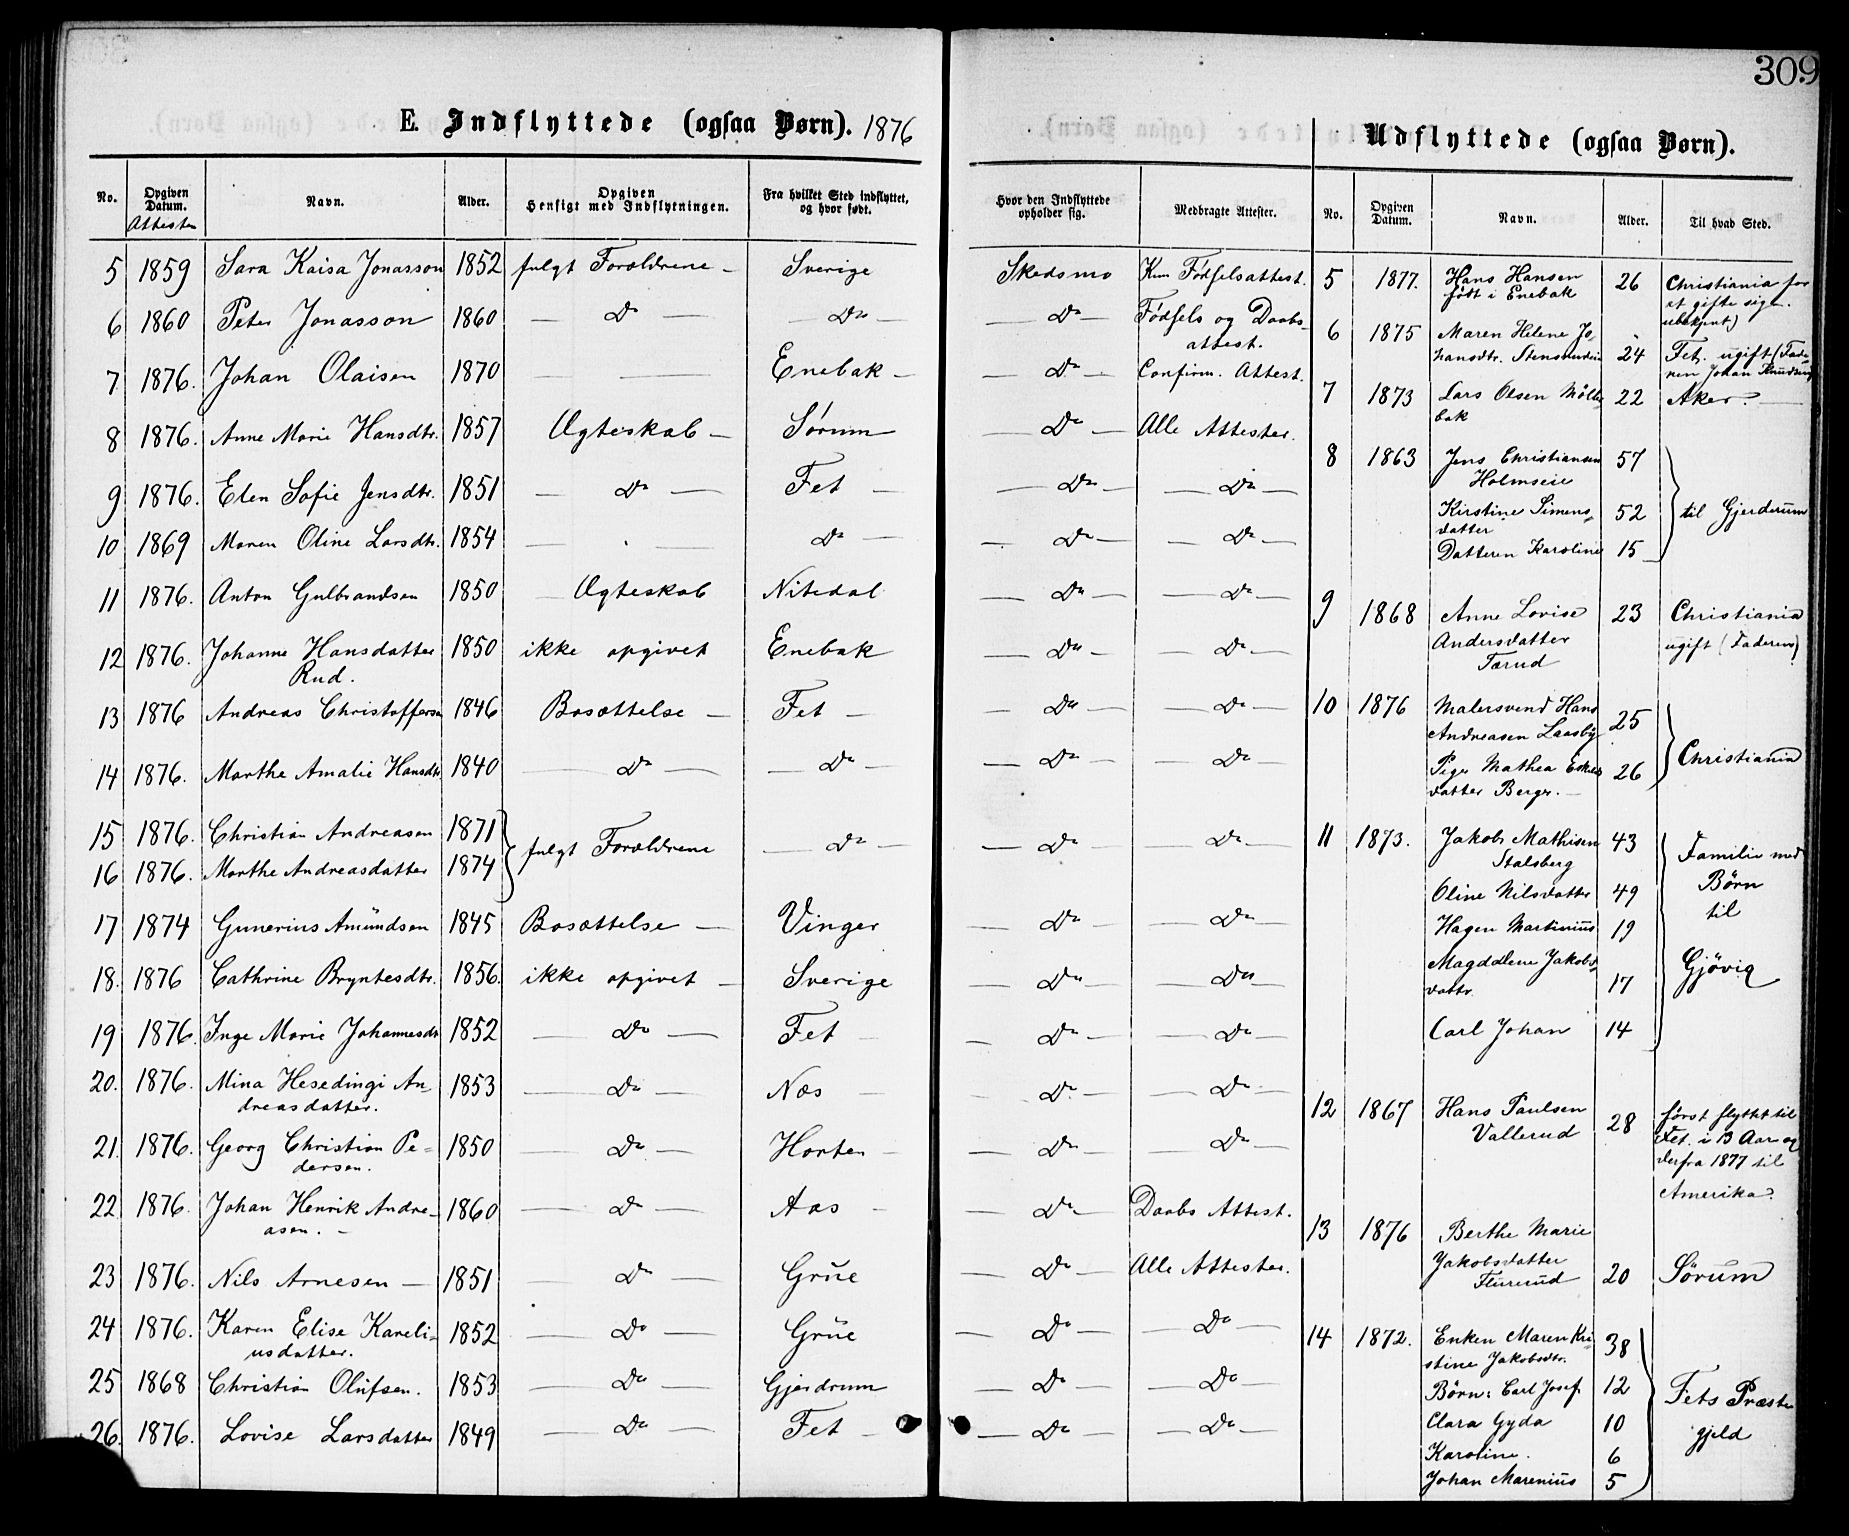 309
E. Indflyttede (ogsaa Børn). 1876
No. | Opgiven Datum. Attesten | Navn. | Alder. | Opgiven Hensigt med Indflytningen. | Fra hvilket Sted indflyttet, og hvor født. | Hvor den Indflyttede opholder sig. | Medbragte Attester.
5 1859 Sara Kaisa Jonasson 1852 fulgt Forældrene – Sverige Skedsmo Kun Fødselsattest.
6 1860 Peter Jonasson 1860 – Do – – Do – – Do – Fødsels og Daabs-
attest.
7 1876. Johan Olaisen 1870 – – Enebak – – Do – Confirm. Attest.
8 1876. Anne Marie Hansdtr. 1857 Ægteskab – Sørum – Do – Alle Attester.
9 1876. Elen Sofie Jensdtr. 1851 – Do – Fet – – Do – – Do –
10 1869 Maren Oline Larsdtr. 1854 – . – Do – – Do – – Do –
11 1876. Anton Gulbrandsen 1850 – Ægteskab Nitedal – Do – – Do –
12 1876. Johanne Hansdatter 1850 ikke opgivet Enebak – Do – – Do –
Rud.
13 1876 Andreas Christoffersen 1846 Bosættelse – Fet – – Do – – Do –
14 1876. Marthe Amalie Hansdtr 1840 – Do – – Do – – Do – – Do –
15 1876. Christian Andreasen 1871
fulgt Forældrene – Do – – Do – – Do –
16 1876. Marthe Andreasdatter 1874
17 1874 Gunerius Amundsen 1845 Bosættelse – Vinger – Do – – Do –
18. 1876 Cathrine Bryntesdtr. 1856. ikke opgivet – Sverige – Do – – Do –
19 1876. Inge Marie Johannesdtr 1852 – Do – Fet – – Do – – Do –
20. 1876. Mina Hesedingi An-
dreasdatter. 1853 – Do – Næs – – Do – – Do –
21. 1876. Georg Christian Pe-
dersen. 1850 – Do – Horten – – Do – – Do –
22 1876. Johan Henrik Andre-
asen. – 1860 – Do – Aas – – Do – Daabs Attest.
23 1876. Nils Arnesen – 1851 – Do – Grue – Do – Alle Attester.
24 1876. Karen Elise Kareli-
usdatter. 1852 – Do – Grue – Do – – Do –
25 1868 Christian Olufsen. 1853 – Do – Gjerdrum – Do – – Do –
26. 1876. Lovise Larsdatter 1849 – Do – Fet – – Do – – Do –
Udflyttede (ogsaa Børn).
No. | Opgiven Datum. | Navn. | Alder. | Til hvad Sted.
5 1877. Hans Hansen 26 Christiania for
født i Enebak at gifte sig.
ubekjent)
6 1875 Maren Helene Jo-
hansdtr. 24 Fet. ugift (Fade-
ren Johan Knudsen
7 1873 Lars Olsen Mölle- 22 Aker. –
bak
8 1863 Jens Christiansen 57
Holmseie
Kirstine Simens- 52 til Gjerderum
datter
Datteren Karoline 15
9 1868 Anne Lovise 23 Christiania
Andersdatter ugift (Faderens)
Tærud
10 1876 Malersvend Hans
Andreasen Laasby 25
Christiania
Pige Mathea 26
datter Berger. –
11 1873. Jakob Mathisen 43 Familie med
Stalsberg Børn
Oline Nilsdatter 49 til
Hagen Martinius 19
Magdalene Jakobs- Gjøvig
dattr. 17
Carl Johan 14
12 1867 Hans Paulsen 28 først flyttet til
Vallerud Fet. i 13 Aar og
derfra 1877 til
Amerika.
13 1876 Berthe Marie
Jakobsdatter 20 Sørum
Flurerud
14 1872. Enken Maren Kri- 38
stine Jakobsdtr.
Børn: Carl Josef 12 Fets Præste-
Clara Gyda 10 gjeld
Karoline. 6
Johan Marenius 5